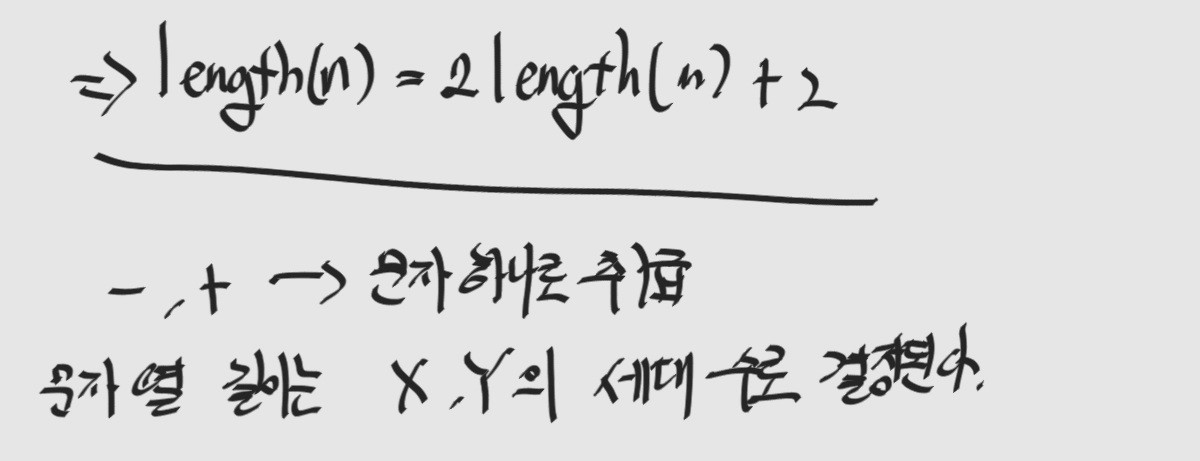 => length(n) = 2 length(n) + 2
-, + →문자 하나로 취급
문자열 길이는 X, Y의 세대 수로 결정된다.